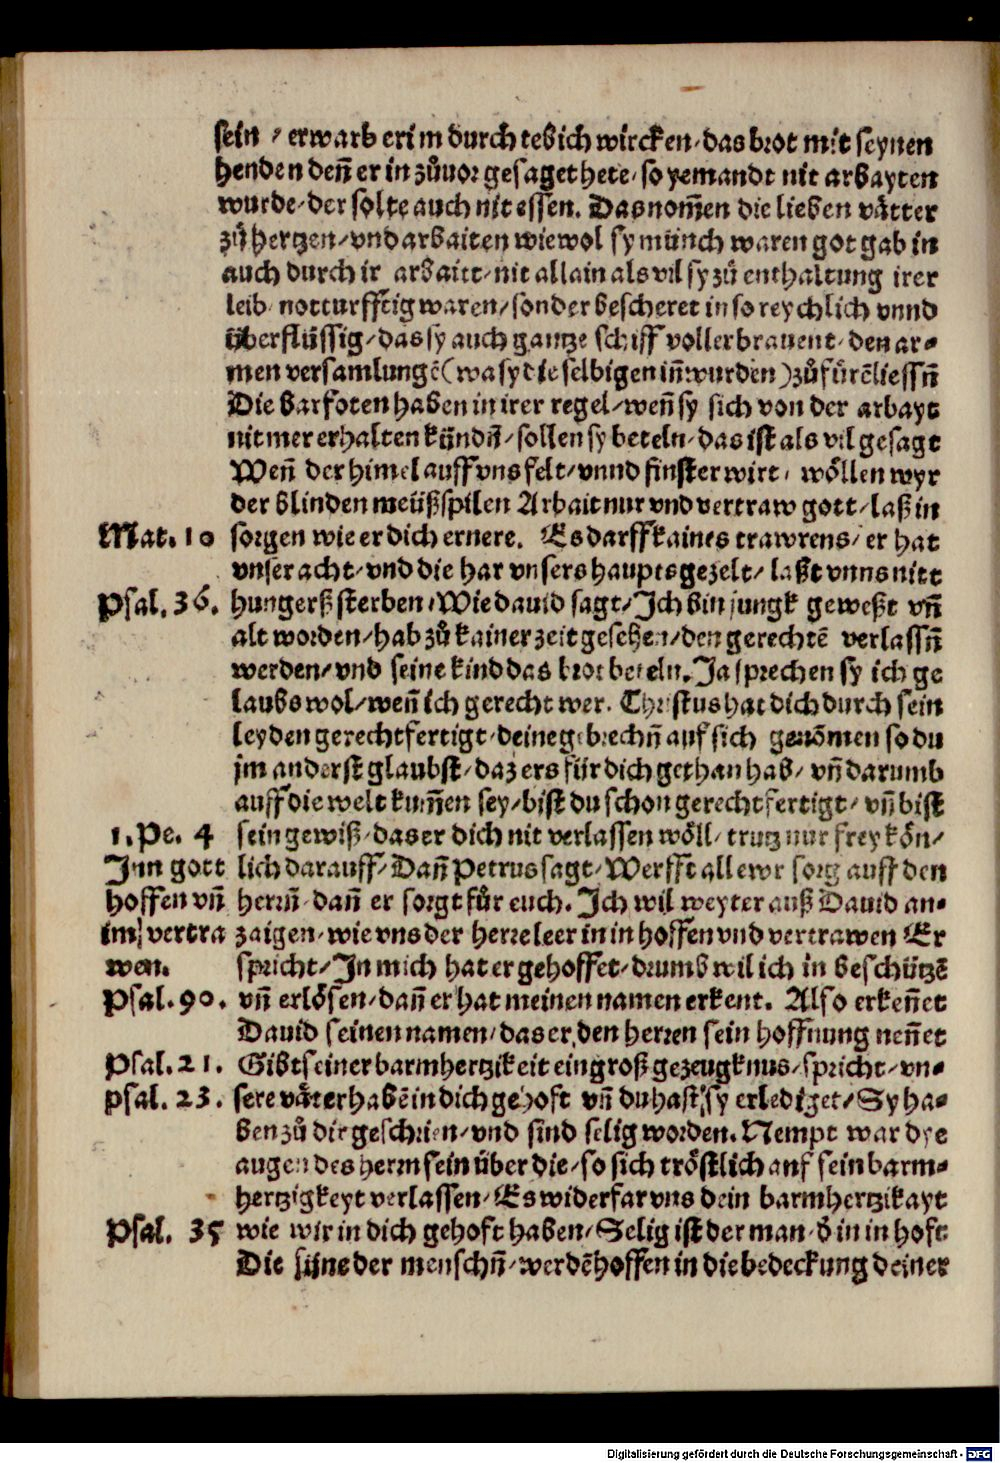 sein / erwarb er im durch tebich wircken / das brot mit seynen
henden deñ er in zůuor gesaget hete / so yemandt nit arbayten
wurde / der solte auch nit essen. Das nom̃en die lieben våtter
zů hertzen / vnd arbaiten wiewol sy münch waren got gab in
auch durch ir arbaitt / nit allain als vil sy zů enthaltung irer
leib notturfftig waren / sonder bescheret in so reychlich vnnd
überflüssig / das sy auch gantze schiff voller brauent / den ar⸗
men versamlungē (wa sy die selbigen iñ wurden) zůfürēliessñ
Die barfoten haben in irer regel / weñ sy sich von der arbayt
nit mer erhalten kündñ / sollen sy beteln / das ist als vil gesagt
Weñ der himel auff vns felt / vnnd finster wirt / wöllen wyr
der blinden meüß spilen Arbait nur vnd vertraw gott / laß in
Mat. 10 sorgen wie er dich ernere. Es darff kaines trawrens / er hat
vnser acht / vnd die har vnsers haupts gezelt / laßt vnns nitt
Psal. 36. hungerß sterben / Wie dauid sagt / Ich bin jungk geweßt vñ
alt worden / hab zů kainer zeit gesehen / den gerechtē verlassñ
werden / vnd seine kind das brot beteln. Ja sprechen sy ich ge
laubs wol / weñ ich gerecht wer. Christus hat dich durch sein
leyden gerechtfertigt / deine gebrechñ auf sich genōmen so du
jm anderst glaubst / daz ers für dich gethan hab / vñ darumb
auff die welt kum̃en sey / bist du schon gerechtfertigt / vñ bist
1. Pe. 4 sein gewiß / das er dich nit verlassen wöll / trutz nur frey kön /
Jnn gott lich darauff / Dañ Petrus sagt / Werfft all ewr sorg auff den
hoffen vñ herrñ / dañ er sorgt für euch. Ich wil weyter auß Dauid an⸗
im vertra zaigen / wie vns der herre leer in in hoffen vnd vertrawen Er
wen. spricht / In mich hat er gehoffet / drumb wil ich in beschützē
Psal. 90. vñ erlösen / dañ er hat meinen namen erkent. Also erkeñet
Dauid seinen namen / das er den herren sein hoffnung neñet
Psal. 21. Gibt seiner barmhertzikeit ein groß gezeugknus / spricht / vn⸗
psal. 23. sere våter habē in dich gehoft vñ du hast sy erlediget / Sy ha⸗
ben zů dir geschrien / vnd sind selig worden. Nempt war dye
augen des herrn sein über die / so sich tröstlich auf sein barm⸗
hertzigkeyt verlassen / Es widerfar vns dein barmhertzikayt
Psal. 35 wie wir in dich gehoft haben / Selig ist der man / d̄ in in hoft
Die süne der menschñ / werdē hoffen in die bedeckung deiner
Digitalisierung gefördert durch die Deutsche Forschungsgemeinschaft - DFG